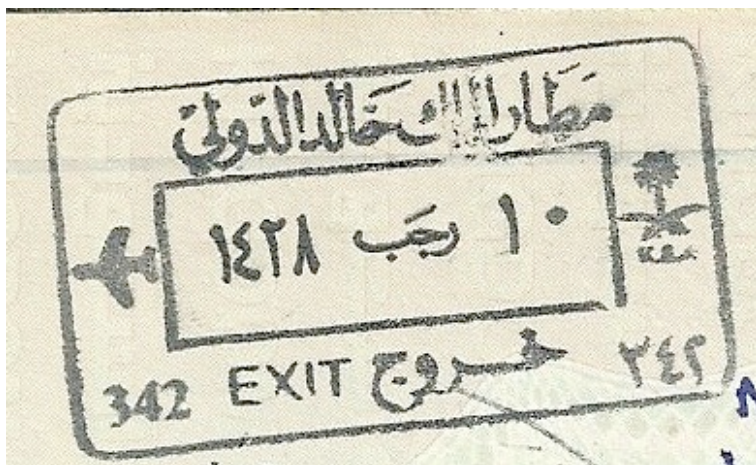 مطار الملك خالد الدولي
١٠ رجب ١٤٢٨
خروج EXIT
342 ٣٤٢